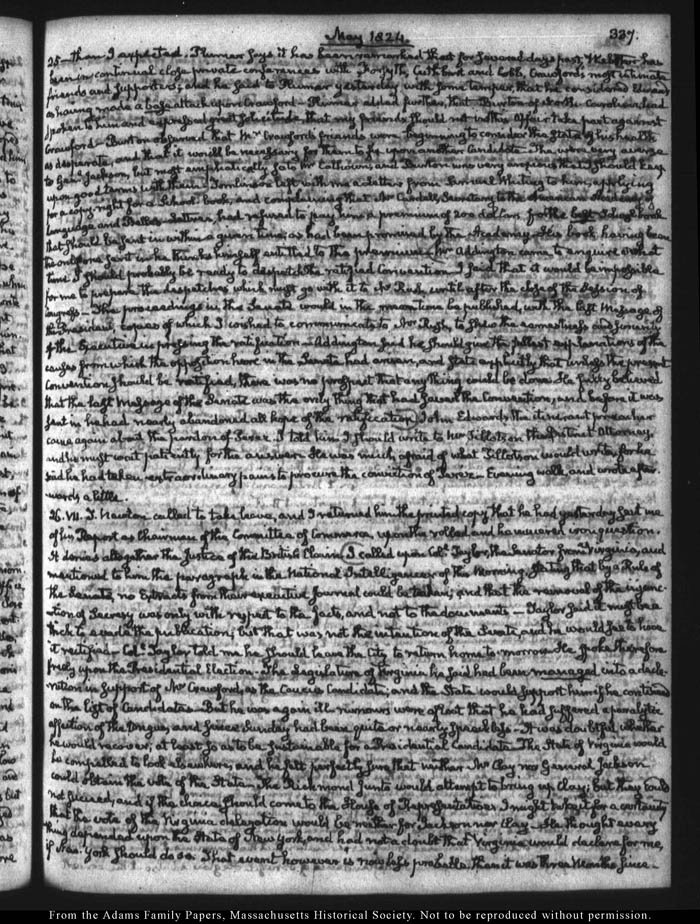 May 1824.
337.
25— than I expected. Plumer says it has been remarked that for several days past, Webster has
been in continual close private conferences with Forsyth, Cuthbert and Cobb, Crawford's most intimate
friends and supporters; and he said to Plumer yesterday with some temper, that he considered Edwards
as having made a base attack upon Crawford— Plumer added further, that Burton of North Carolina, had
spoken to him and expressed great solicitude that my friends should not in this affair take part against
Crawford— Burton observed that Mr Crawford's friends were beginning to consider the State of his health
as desperate, and that it would be necessary for them to fix upon another Candidate— They were very averse
to Genl Jackson, but most emphatically so to Mr Calhoun; and Burton was very anxious that I should keep
upon good terms with them— Tomlinson left with me a letter from Samuel Whiting to him, applying
for a copy right for a School book, and complaining that Mr Cardell, Secretary to the American Academy of
Language and Belles-Lettres, had refused to pay him a premium of 200 dollars, for the best School book
that should be sent in within a given time, as had been promised by the Academy— His book having been
the only one sent in he thinks himself entitled to the premium— Mr Addington came to enquire at what
time I should probably be ready to despatch the ratified Convention. I said that it would be impossible
for me to prepare the despatches which must go with it to Mr Rush, until after the close of the Session of
Congress— The proceedings in the Senate would in the mean time be published, with the last Message of
the President, copies of which I wished to communicate to Mr Rush, to shew the earnestness and sincerity
of the Executive in pressing the ratification— Addington said he should give the fullest explanations of the
causes from which the opposition here in the Senate had arisen, and state explicitly that unless the present
Convention should be ratified, there was no prospect that any thing could be done. He fully believed
that the last Message of the Senate was the only thing that had saved the Convention, and before it was
sent in he had nearly abandoned all hope of the ratification. John Edwards the itinerant preacher
came again about the pardon of Perez. I told him I should write to Mr Tillotson the District Attorney,
and he must wait patiently for the answer. He was much afraid of what Tillotson would write, for he
said he had taken extraordinary pains to procure the conviction of Perez— Evening walk, and wrote after-
wards a little.
26. VII. T. Newton called to take leave, and I returned him the printed copy that he had yesterday lent me
of his Report as Chairman of the Committee of Commerce, upon the rolled and hammered iron question.
It denies altogether the Justice of the British Claim. I called upon Coll Taylor, the Senator from Virginia, and
mentioned to him the paragraph in the National Intelligencer of this Morning, stating that by a Rule of
the Senate, no Extracts from their executive Journal could be taken; and that the removal of the injunc-
tion of Secrecy was only with respect to the facts, and not to the documents— Taylor said it must be a
trick to evade the publication; but that was not the intention of the Senate, and he would see to have
it rectified— Coll Taylor told me he should leave the City to return home to-morrow. He spoke therefore
freely upon the Presidential Election. The Legislature of Virginia he said had been managed into a decla-
ration in support of Mr Crawford, as the Caucus Candidate; and the State would support him if he continued
on the list of Candidates— But he was again ill, rumours were afloat that he had suffered apoplectic
affection of the tongue, and since Sunday had been quite or nearly speechless— It was doubtful whether
he would recover, at least so as to be sustainable for a Presidential Candidate. The State of Virginia would
be compelled to look elsewhere, and he felt perfectly sure that neither Mr Clay nor General Jackson
could obtain the vote of the State— The Richmond Junto would attempt to bring up Clay; but they could
not succeed, and if the choice should come to the House of Representatives I might expect for a certainty
that the vote of the Virginia delegation would be neither for Jackson nor Clay— He thought every
thing depended upon the State of New York, and had not a doubt that Virginia would declare for me,
if New-York should do so. That event however is now less probable than it was three Months since—
From the Adams Family Papers, Massachusetts Historical Society. Not to be reproduced without permission.